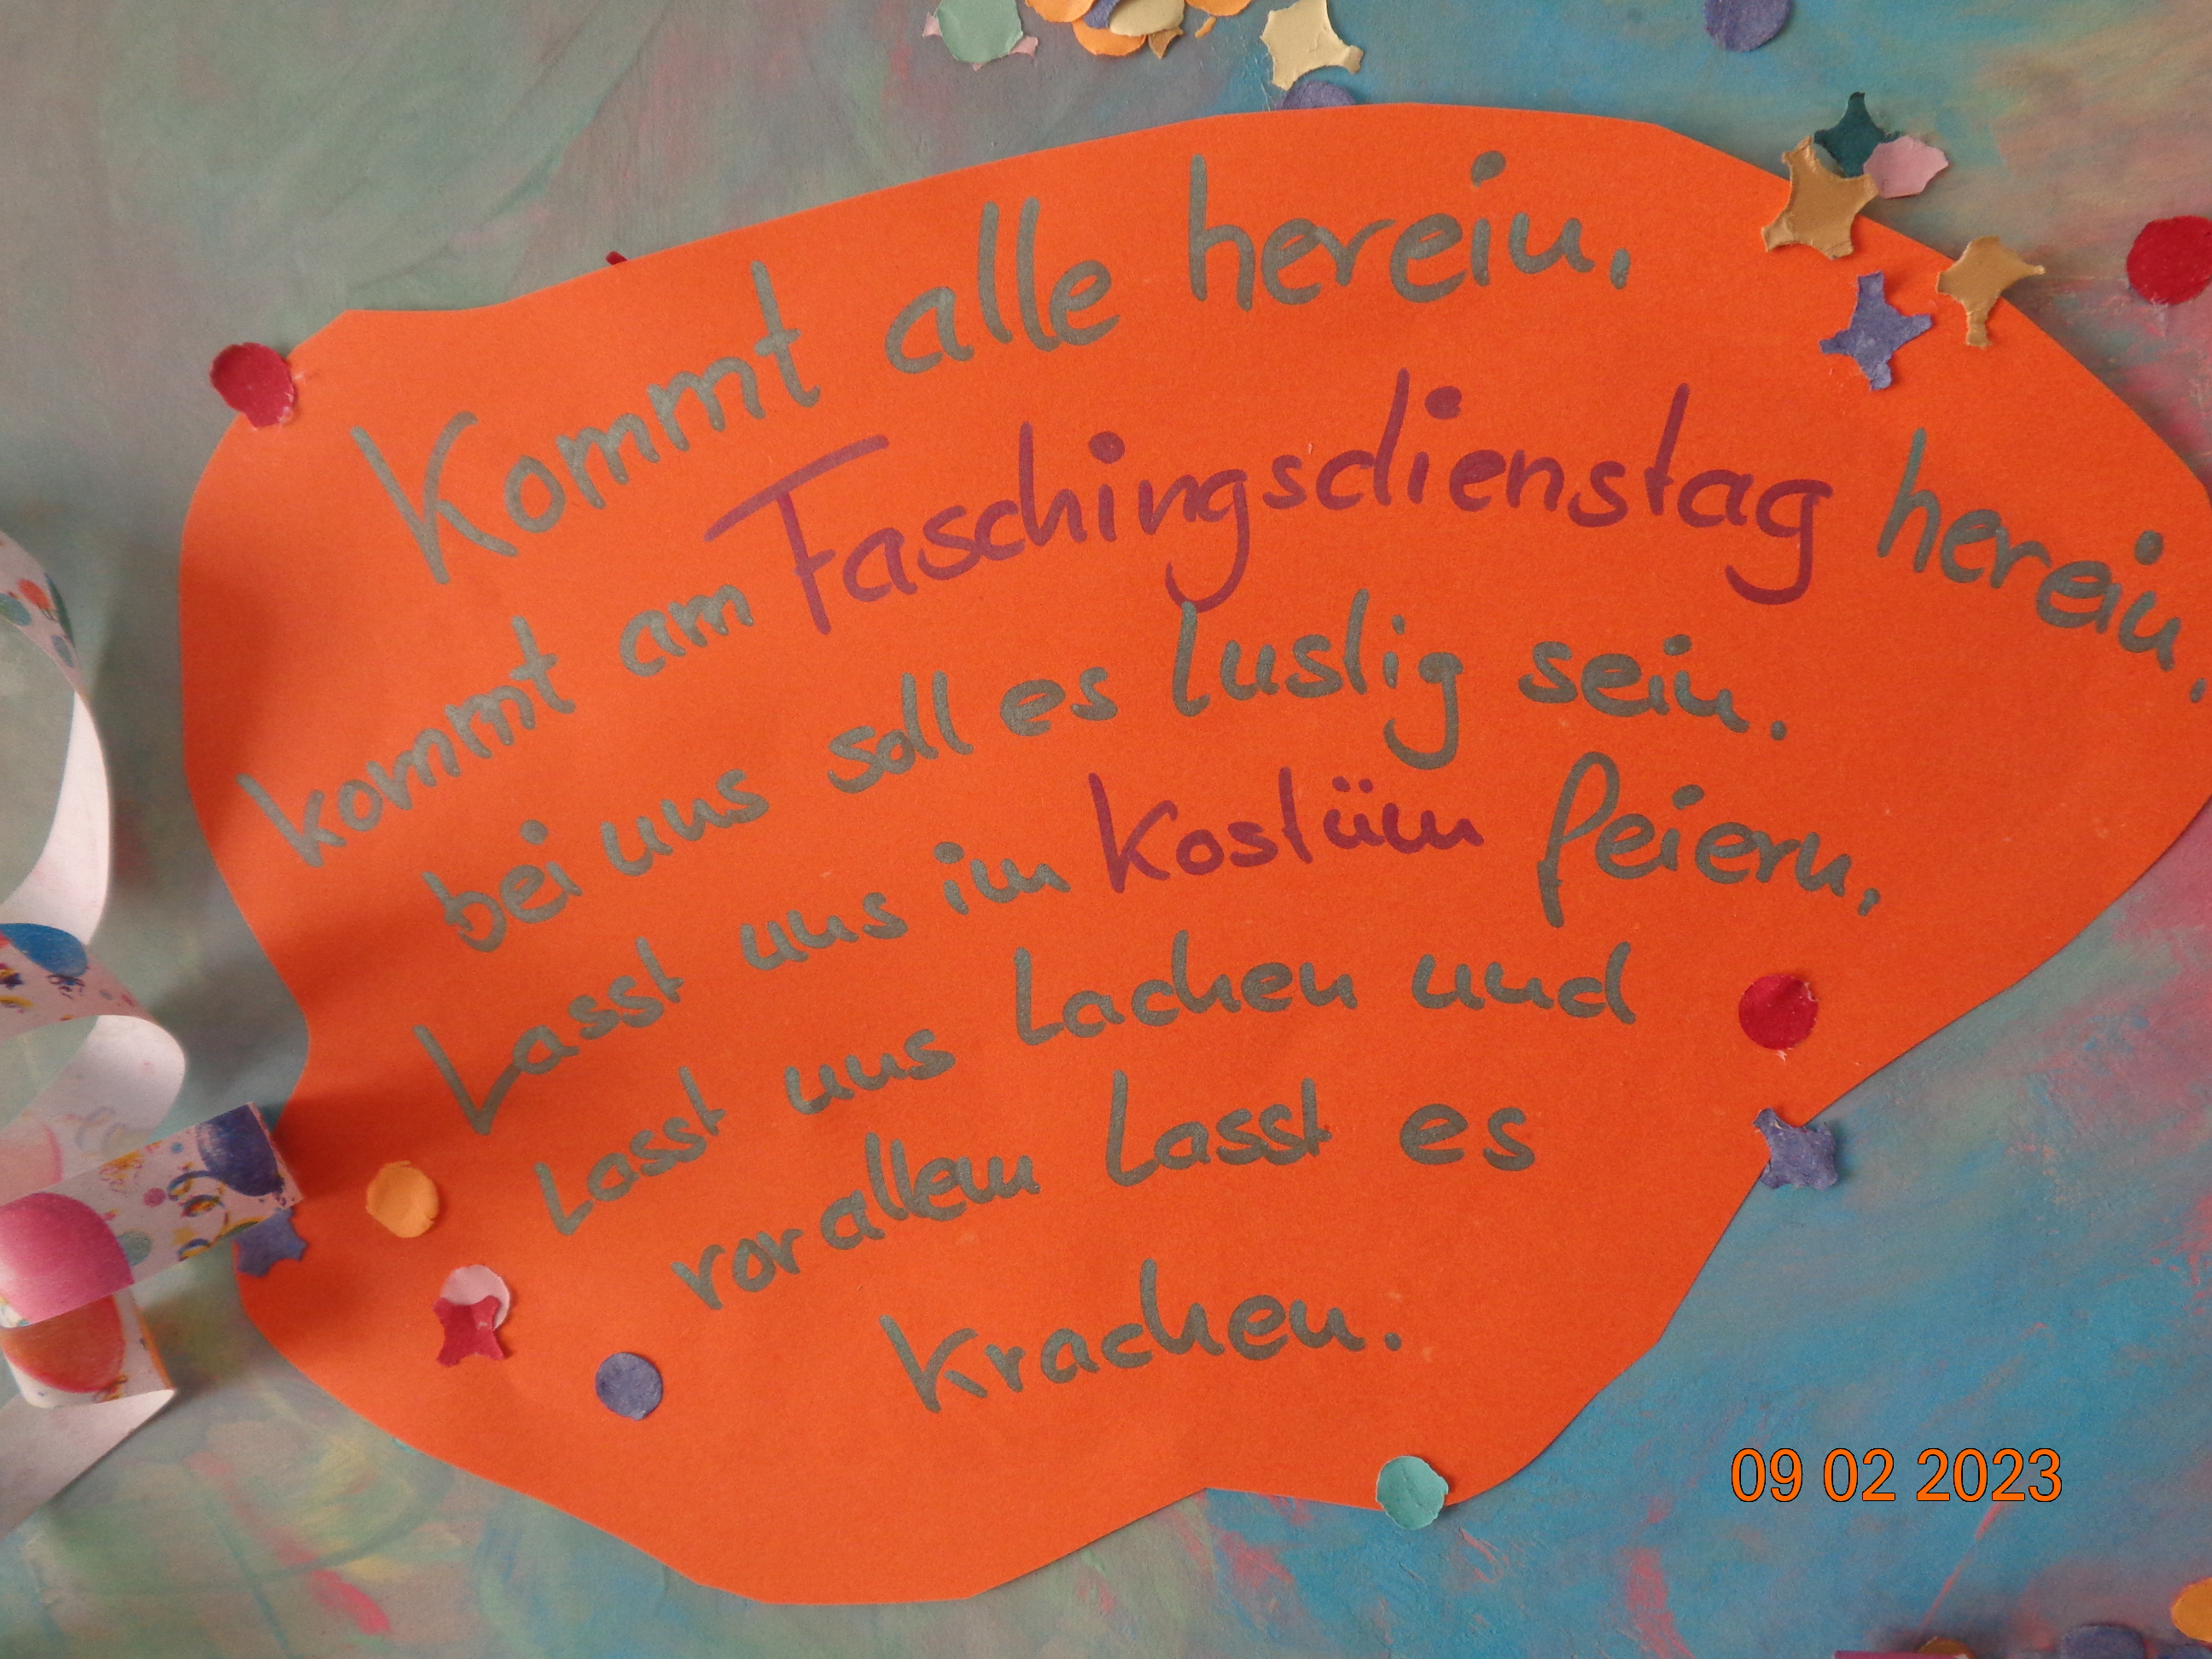 Kommt alle herein,
kommt am Faschingsdienstag herein,
bei uns soll es lustig sein.
Lasst uns im Kostüm feiern,
Lasst uns Lachen und
vor allem Lasst es
Krachen.
09 02 2023